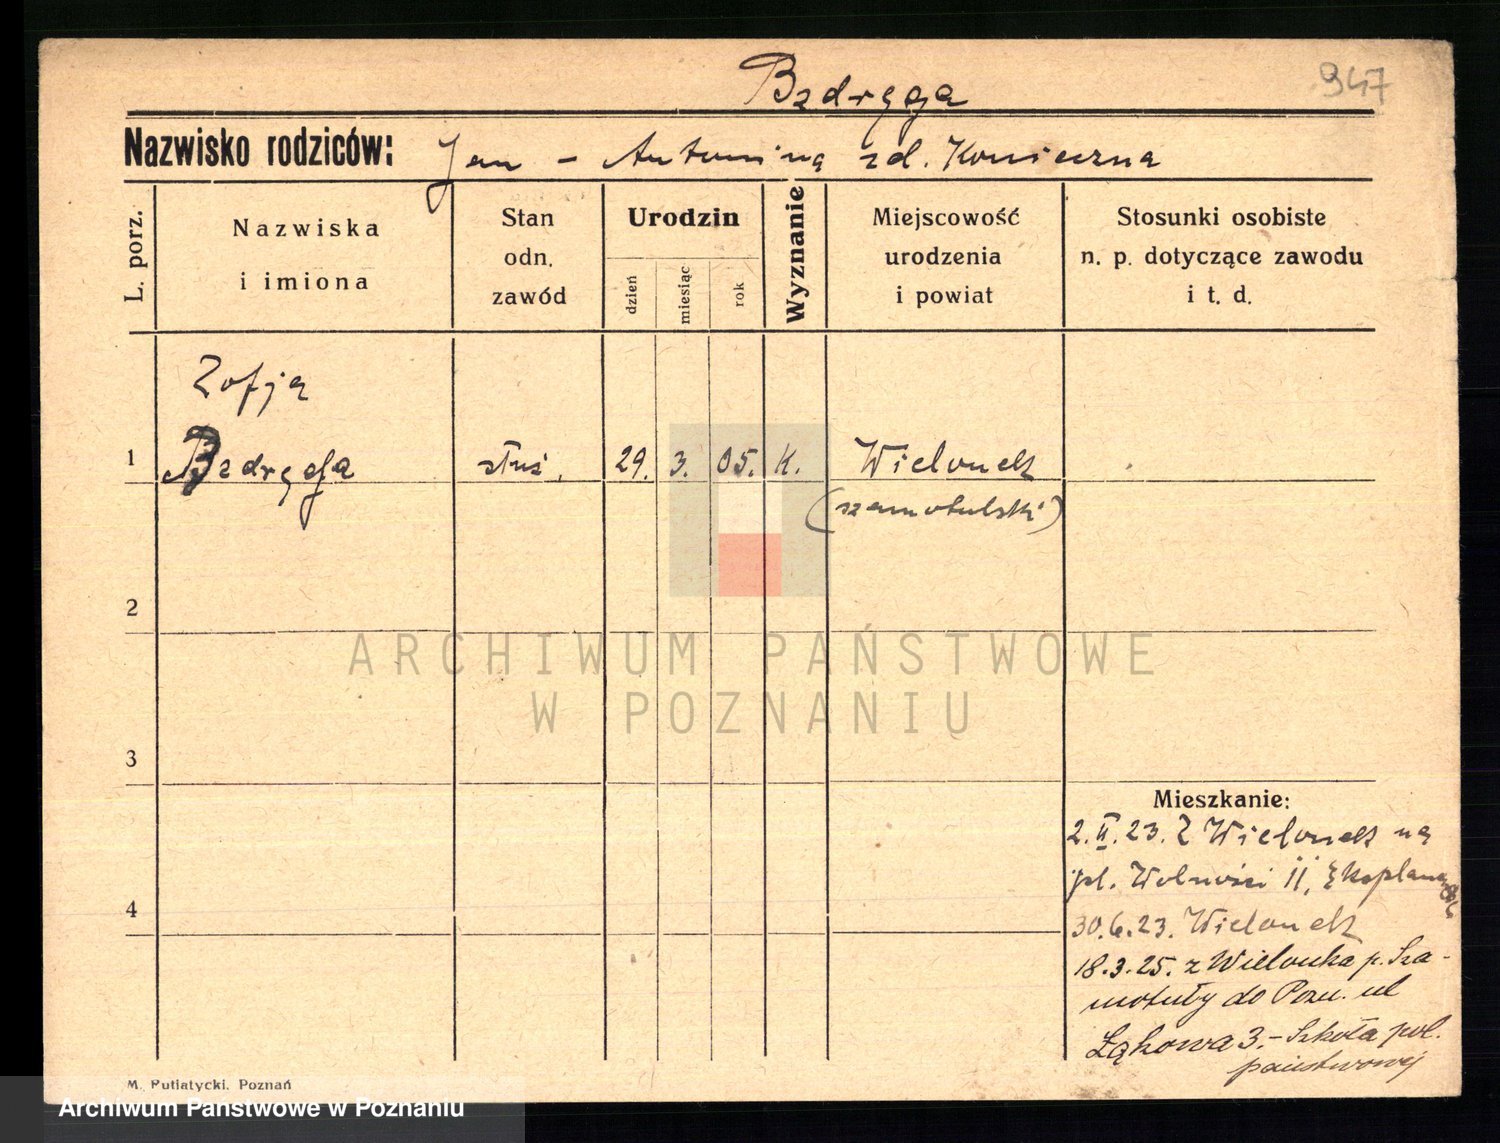 947
Bzdręga
Nazwisko rodziców: Jan - Antonina zd. Konieczna
L. porz.
Nazwiska
i imiona
Stan
odn.
zawód
Urodzin
dzień
miesiąc
rok
Wyznanie
Miejscowość
urodzenia
i powiat
Stosunki osobiste
n. p. dotyczące zawodu
i t. d.
Zofja
1 Bzdręga służ. 29. 3. 05. K. Wielonek
(szamotulski)
2
ARCHIWUM PAŃSTWOWE
W POZNANIU
3
Mieszkanie:
2.II.23. Z Wielonek na
pl. Wolności 11,
4
30.6.23. Wielonek
18.3.25. z Wielonka p. Sza-
motuły do Pozn. ul
Łąkowa 3.- Szkoła pol.
państwowej
M. Putiatycki. Poznań
Archiwum Państwowe w Poznaniu